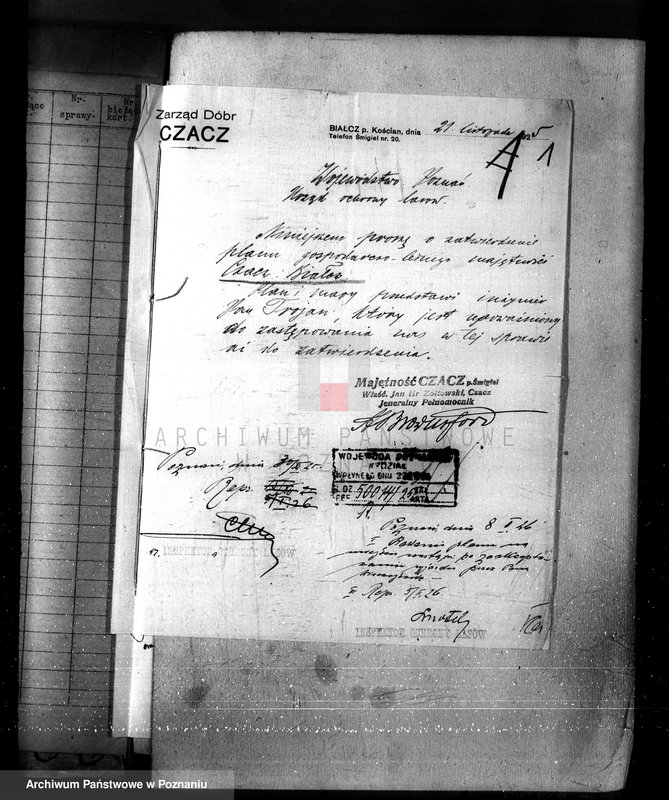 Nr.
sprawy.
Nr.
bieżąc
kart.
Zarząd Dóbr
CZACZ
BIAŁCZ p. Kościan, dnia 21 listopada 1925
Telefon Śmigiel nr. 20.
A 1
Województwo Poznań
Urząd ochrony lasów.
Niniejszem proszę o zatwierdzenie
planu gospodarczo-leśnego majętności
Czacz - Białcz.
Plan i mapy przedstawi inżynier
Jan Trojan, który jest upoważniony
do zastępowania nas w tej sprawie
aż do zatwierdzenia.
Majętność CZACZ p. Śmigiel
Właśc. Jan Hr. Żółtowski, Czacz
Jeneralny Pełnomocnik
ARCHIWUM PAŃSTWOWE
W POZNANIU
Poznań, dnia
WOJEWODA
WYDZIAŁ
WPŁYNĘŁO DNIU
L. DZ. 50014/25
Repr.
INSPEKTOR OCHRONY LASÓW
Poznań, dnia 8 X 26
I Badanie planu na
miejscu nastąpi po
wyjazdu przez Pana
II Rep. 5/X.26
INSPEKTOR OCHRONY LASÓW
Archiwum Państwowe w Poznaniu